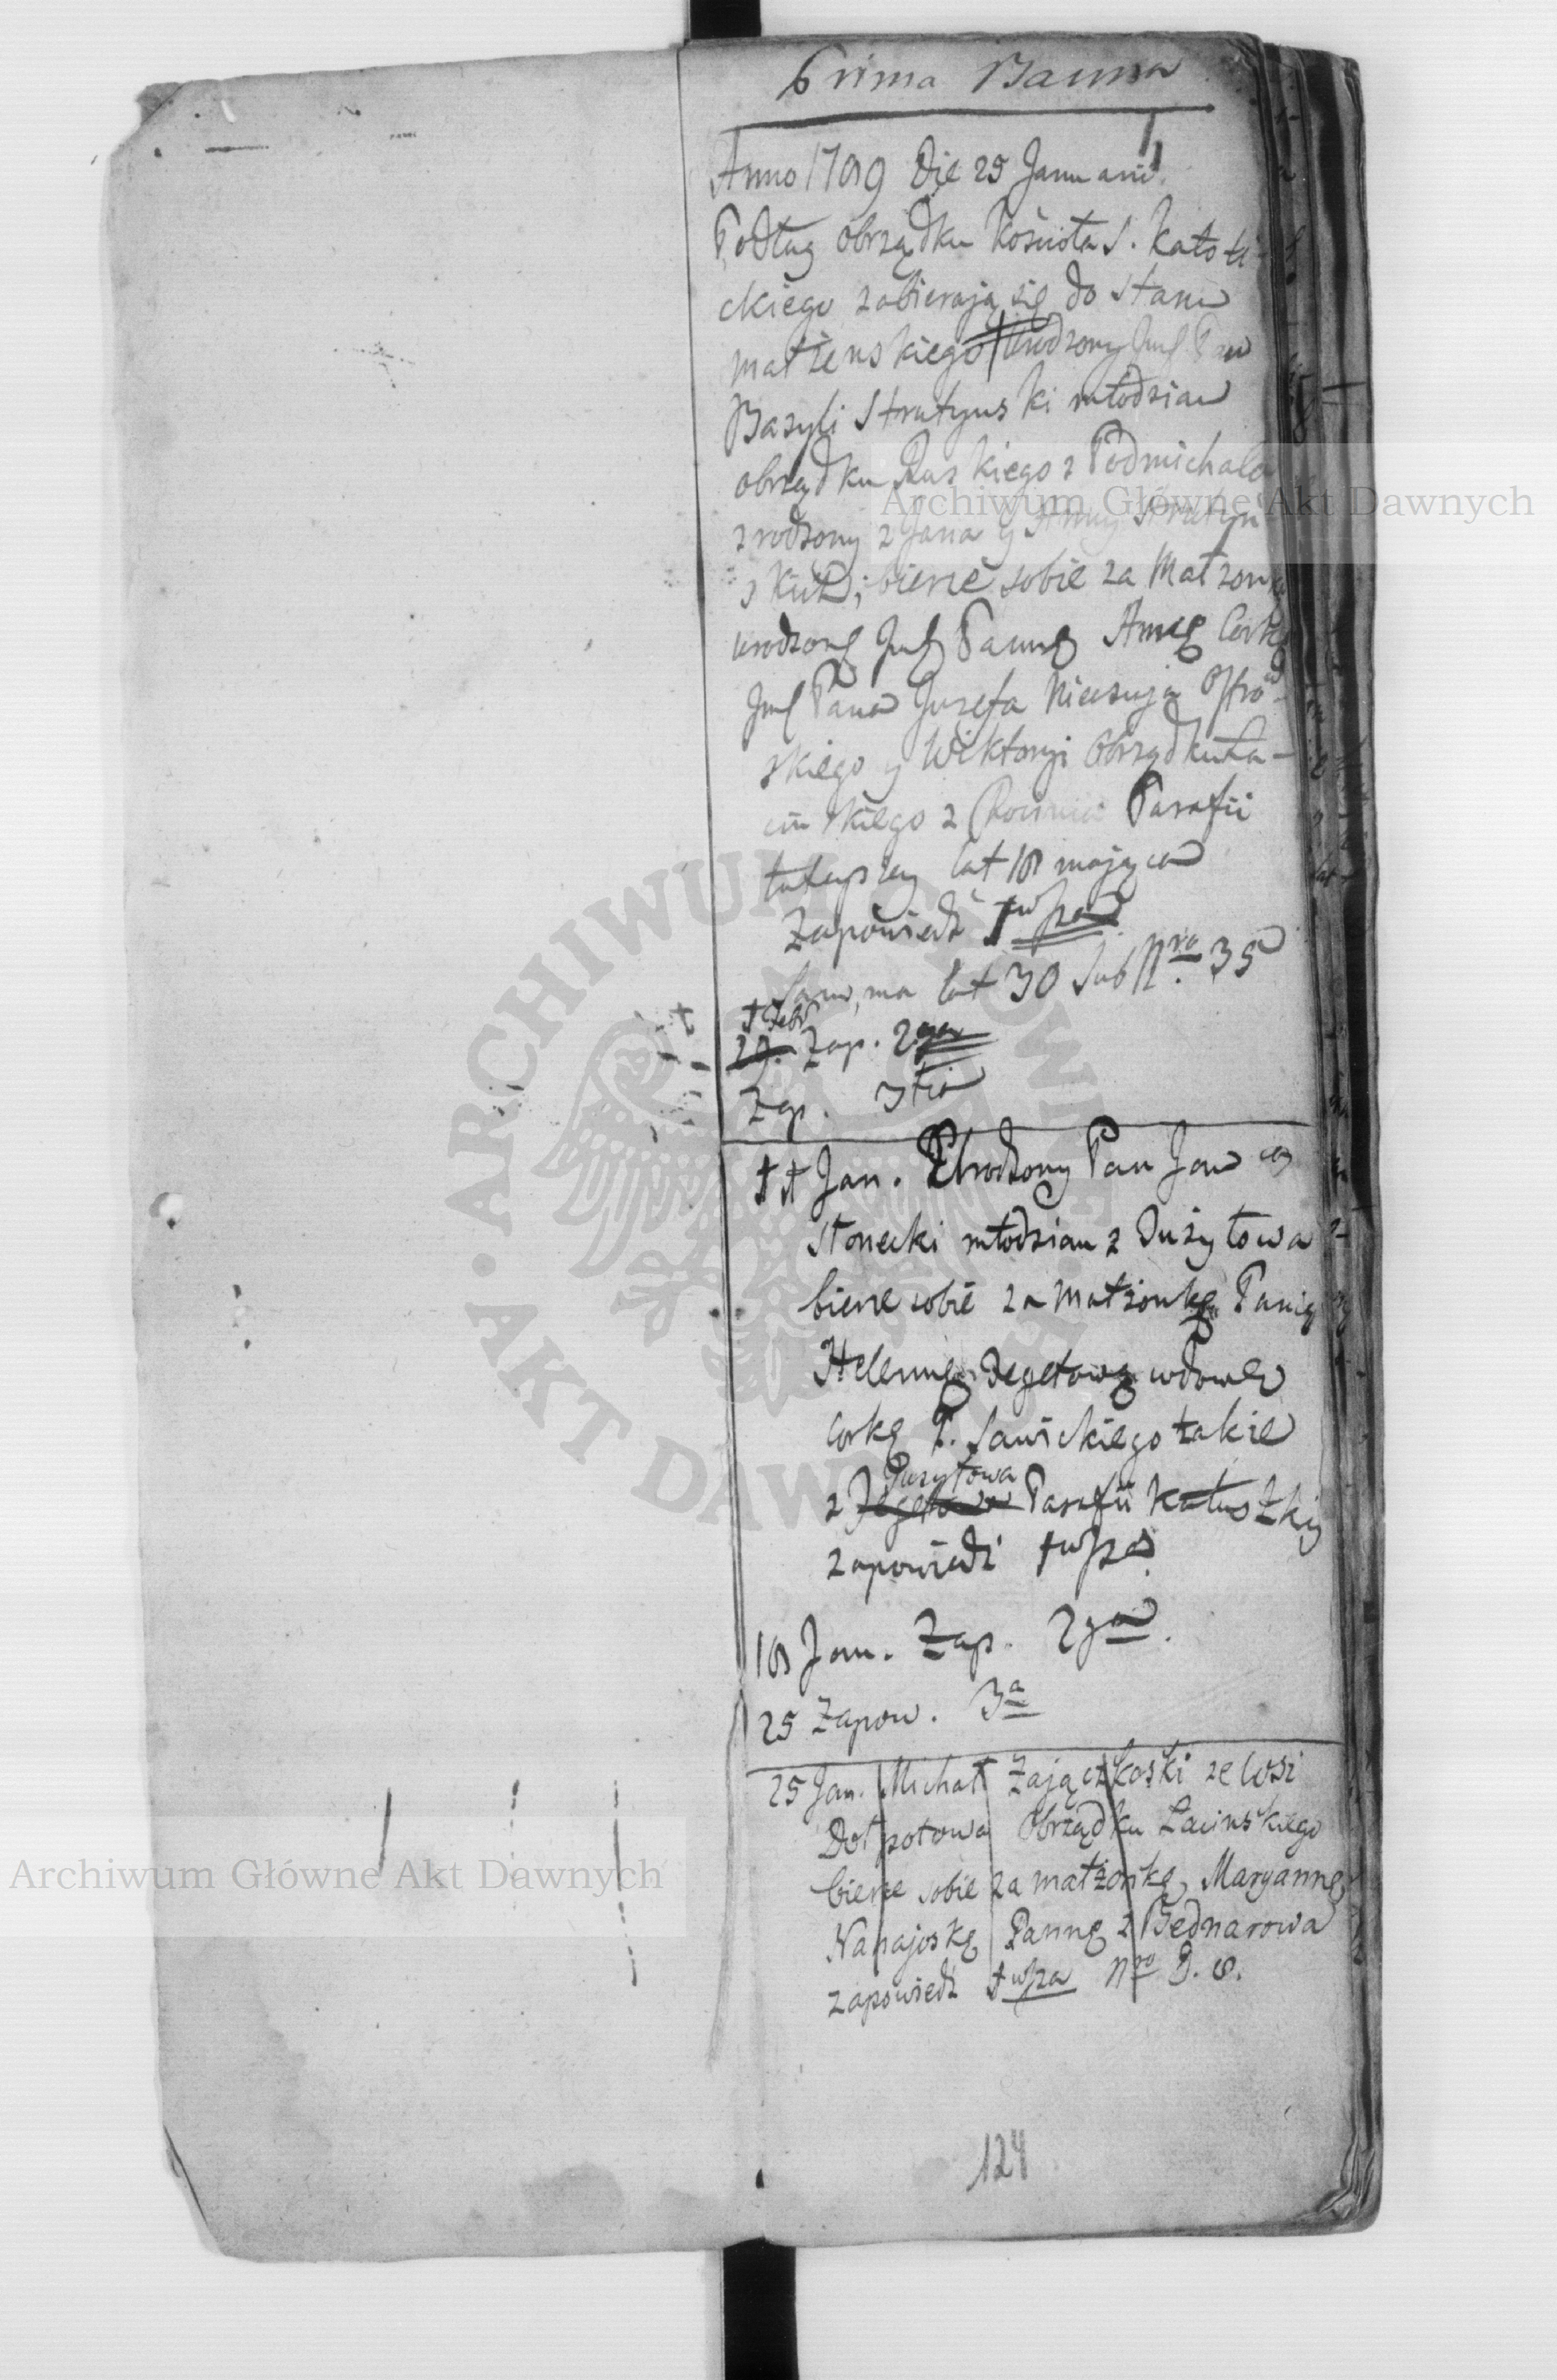 Prima Banna
Anno 1789 Die 25 Januarii
Podług obrządku Kościoła S. Katoli-
ckiego zabierają się do stanu
małżenskiego Urodzony Jmć Pan
Bazyli Stratynski młodzian
obrządku Ruskiego z Podmichala
zrodzony z Jana y Anny Stratyn
skich; bierze sobie za Małżonkę
urodzoną Jmć Pannę Annę Corkę
Jmć Pana Jozefa Ostro-
skiego y Wiktoryi Obrządku Ła-
cin skiego z Parafii
tuteyszey lat 18 maiąca
Zapowiedź 1wsza
lat 30 sub Nro 35
1 Febr
Zap. 2ga
Zap. 3tia
11 Jan. Urodzony Pan Jan
Słonecki młodzian z Dużyłowa
bierze sobie za małżonkę Panią
Helennę Degetową wdowę
Corkę P. Sawickiego takie
z Parafii Kałuskiy
zapowiedź 1wsza
18 Jan. Zap. 2ga.
25 Zapow. 3a
25 Jan. Michał Zajączkoski ze Wsi
Dołpotowa Obrządku Łacinskiego
bierze sobie za małżonkę Maryannę
Nahajoskę Pannę z Bednarowa
zapowiedź 1wsza Nro D. 8.
124
Archiwum Główne Akt Dawnych
Archiwum Główne Akt Dawnych
ARCHIWUM GŁÓWNE AKT DAWNYCH